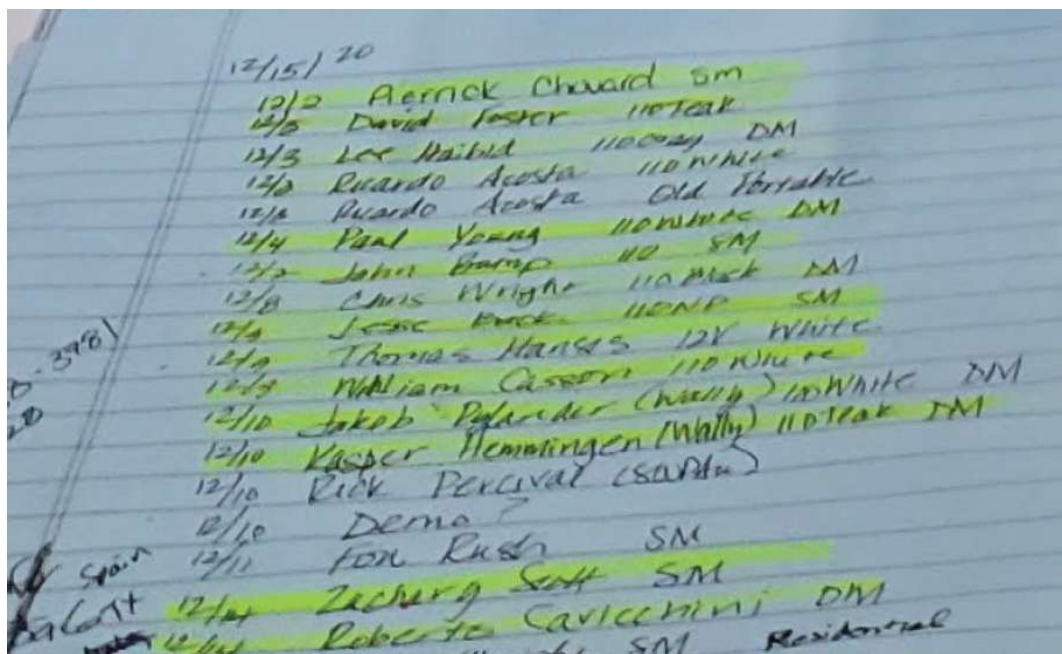 12/15/20
12/2 Aerrick Chouard SM
12/3 David Foster 110 Teak
12/3 Lee 110 DM
Ricardo Acosta 110 White
Ricardo Acosta Old Portable
12/4 Paul Young 110 White DM
12/2 John 110 SM
12/8 Chris Wright 110 Black DM
Jesse 110NP SM
12/9 Thomas Hanses 12V White
12/9 William Casson 110 White
12/10 Jakob Polander (Wally) 110 White DM
12/10 Kasper Hemmingen (Wally) 110 Teak DM
12/10 Rick Percival
12/10 Demo?
12/11 Fox Rush SM
12/14 Zachary Scott SM
12/14 Roberto Cavicchini DM
SM Residential
3981
Spain